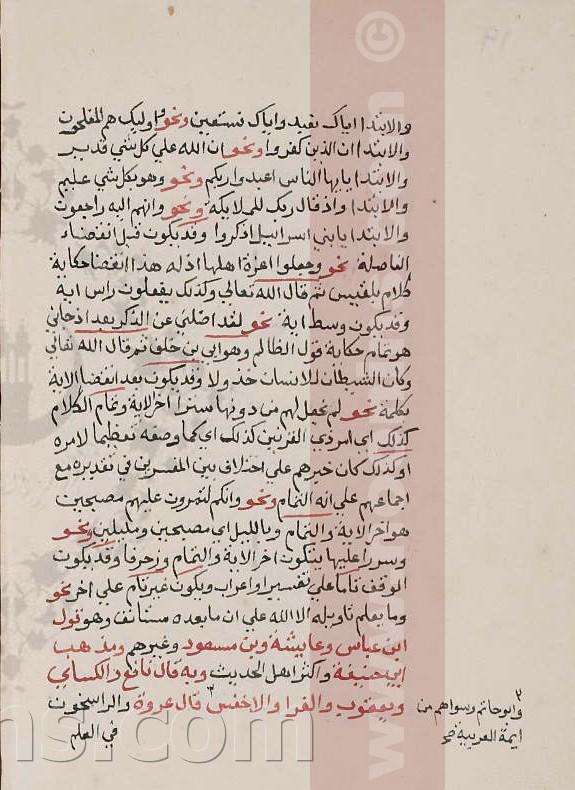 والابتدا اياك نعبد واياك نستعين ونحو واوليك هم المفلحون
والابتدا ان الذين كفروا ونحو ان الله علي كل شي قدير
والابتدا يايها الناس اعبدوا ربكم ونحو وهو بكل شي عليم
والابتدا واذ قال ربك للملايكة ونحو وانهم اليه راجعون
والابتدا يابني اسرائيل اذكروا وقد يكون قبل انقضاء
الفاصلة نحو وجعلوا اعزة اهلها اذله هذا انقضا حكاية
كلام بلقيس ثم قال الله تعالي وكذلك يفعلون راس اية
وقد يكون وسط اية نحو لقد اضلني عن الذكر بعد اذ جاني
هو تمام حكاية قول الظالم وهو ابي بن خلف ثم قال الله تعالي
وكان الشيطان للانسان خذولا وقد يكون بعد انقضا الاية
بكلمة نحو لم نجعل لهم من دونها سترا اخر الاية وتمام الكلام
كذلك اي امر ذي القرنين كذلك اي كما وصفه تعظيما لامره
او كذلك كان خبرهم علي اختلاف بين المفسرين في تقديره مع
اجماعهم علي انه التمام ونحو وانكم لتمرون عليهم مصبحين
هو اخر الاية والتمام وبالليل اي مصبحين ومليلين ونحو
وسررا عليها يتكون اخر الاية والتمام وزخرفا وقد يكون
الوقف تاما علي تفسير او اعراب ويكون غير تام علي اخر نحو
وما يعلم تاويله الا الله علي ان ما بعده مستانف وهو قول
ابن عباس وعايشة وبن مسعود وغيرهم ومذهب
ابي حنيفة واكثر اهل الحديث وبه قال نافع والكساي
ويعقوب والفرا والاخفش ٣ قال عروة والراسخون
في العلم
٣
وابو حاتم وسواهم من
ايمة العربية صح
ns.com